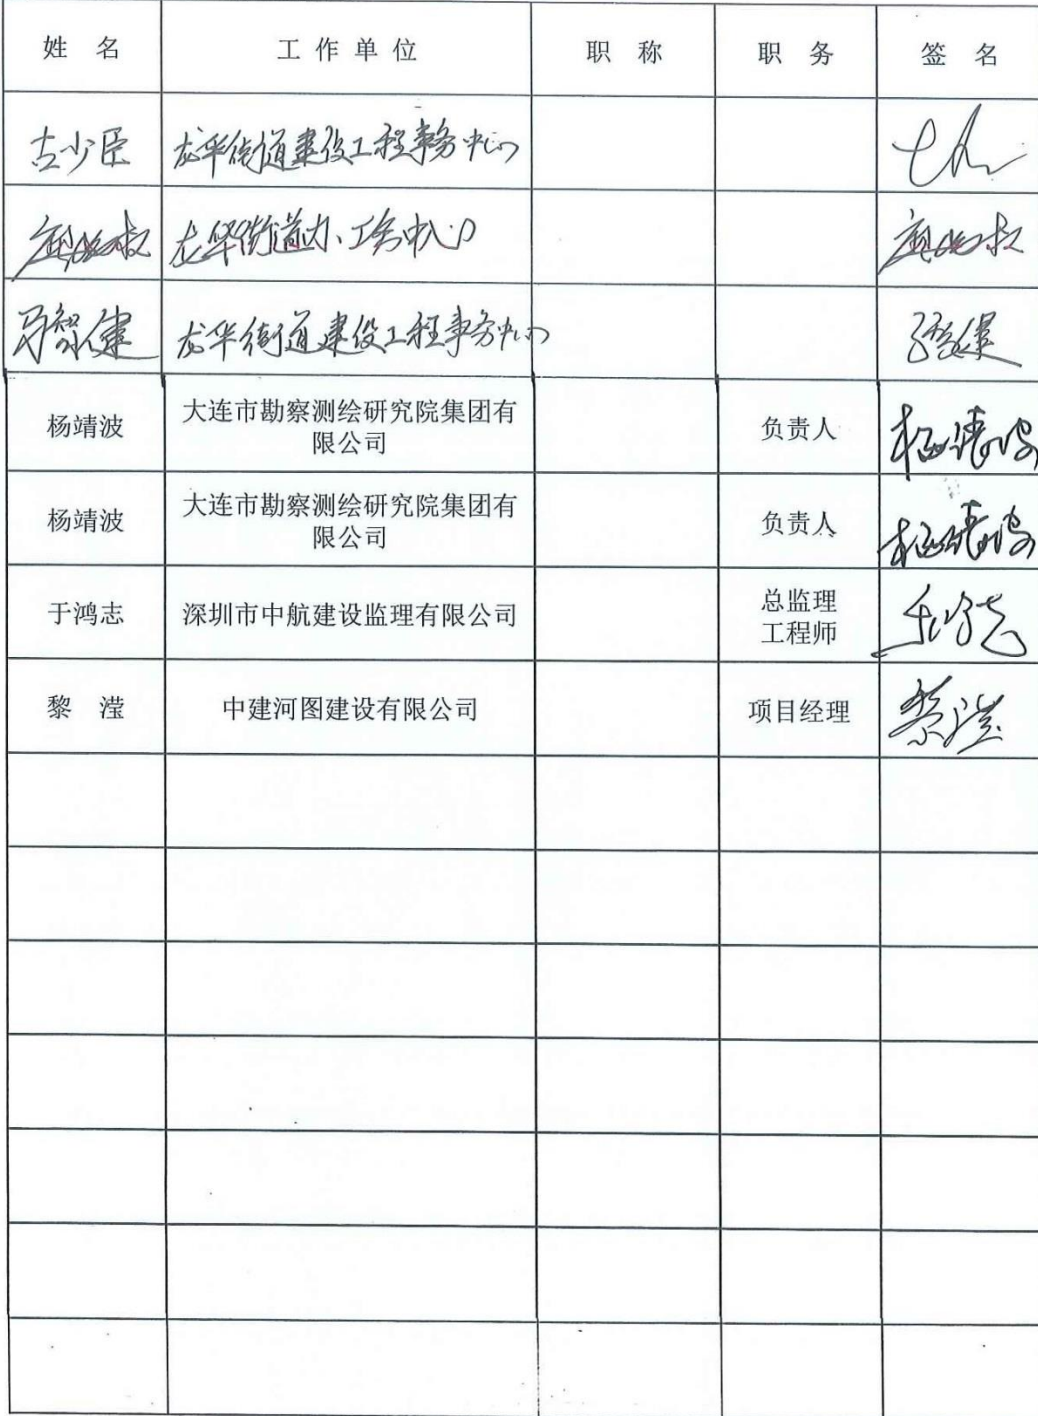 姓 名 工 作 单 位 职 称 职 务 签 名
古少臣 龙华街道建设工程事务中心
龙华街道办工务中心
马智健 龙华街道建设工程事务中心 马智健
杨靖波 大连市勘察测绘研究院集团有 负责人 杨靖波
限公司
杨靖波 大连市勘察测绘研究院集团有 负责人 杨靖波
限公司
于鸿志 深圳市中航建设监理有限公司 总监理 于鸿志
工程师
黎 滢 中建河图建设有限公司 项目经理 黎滢